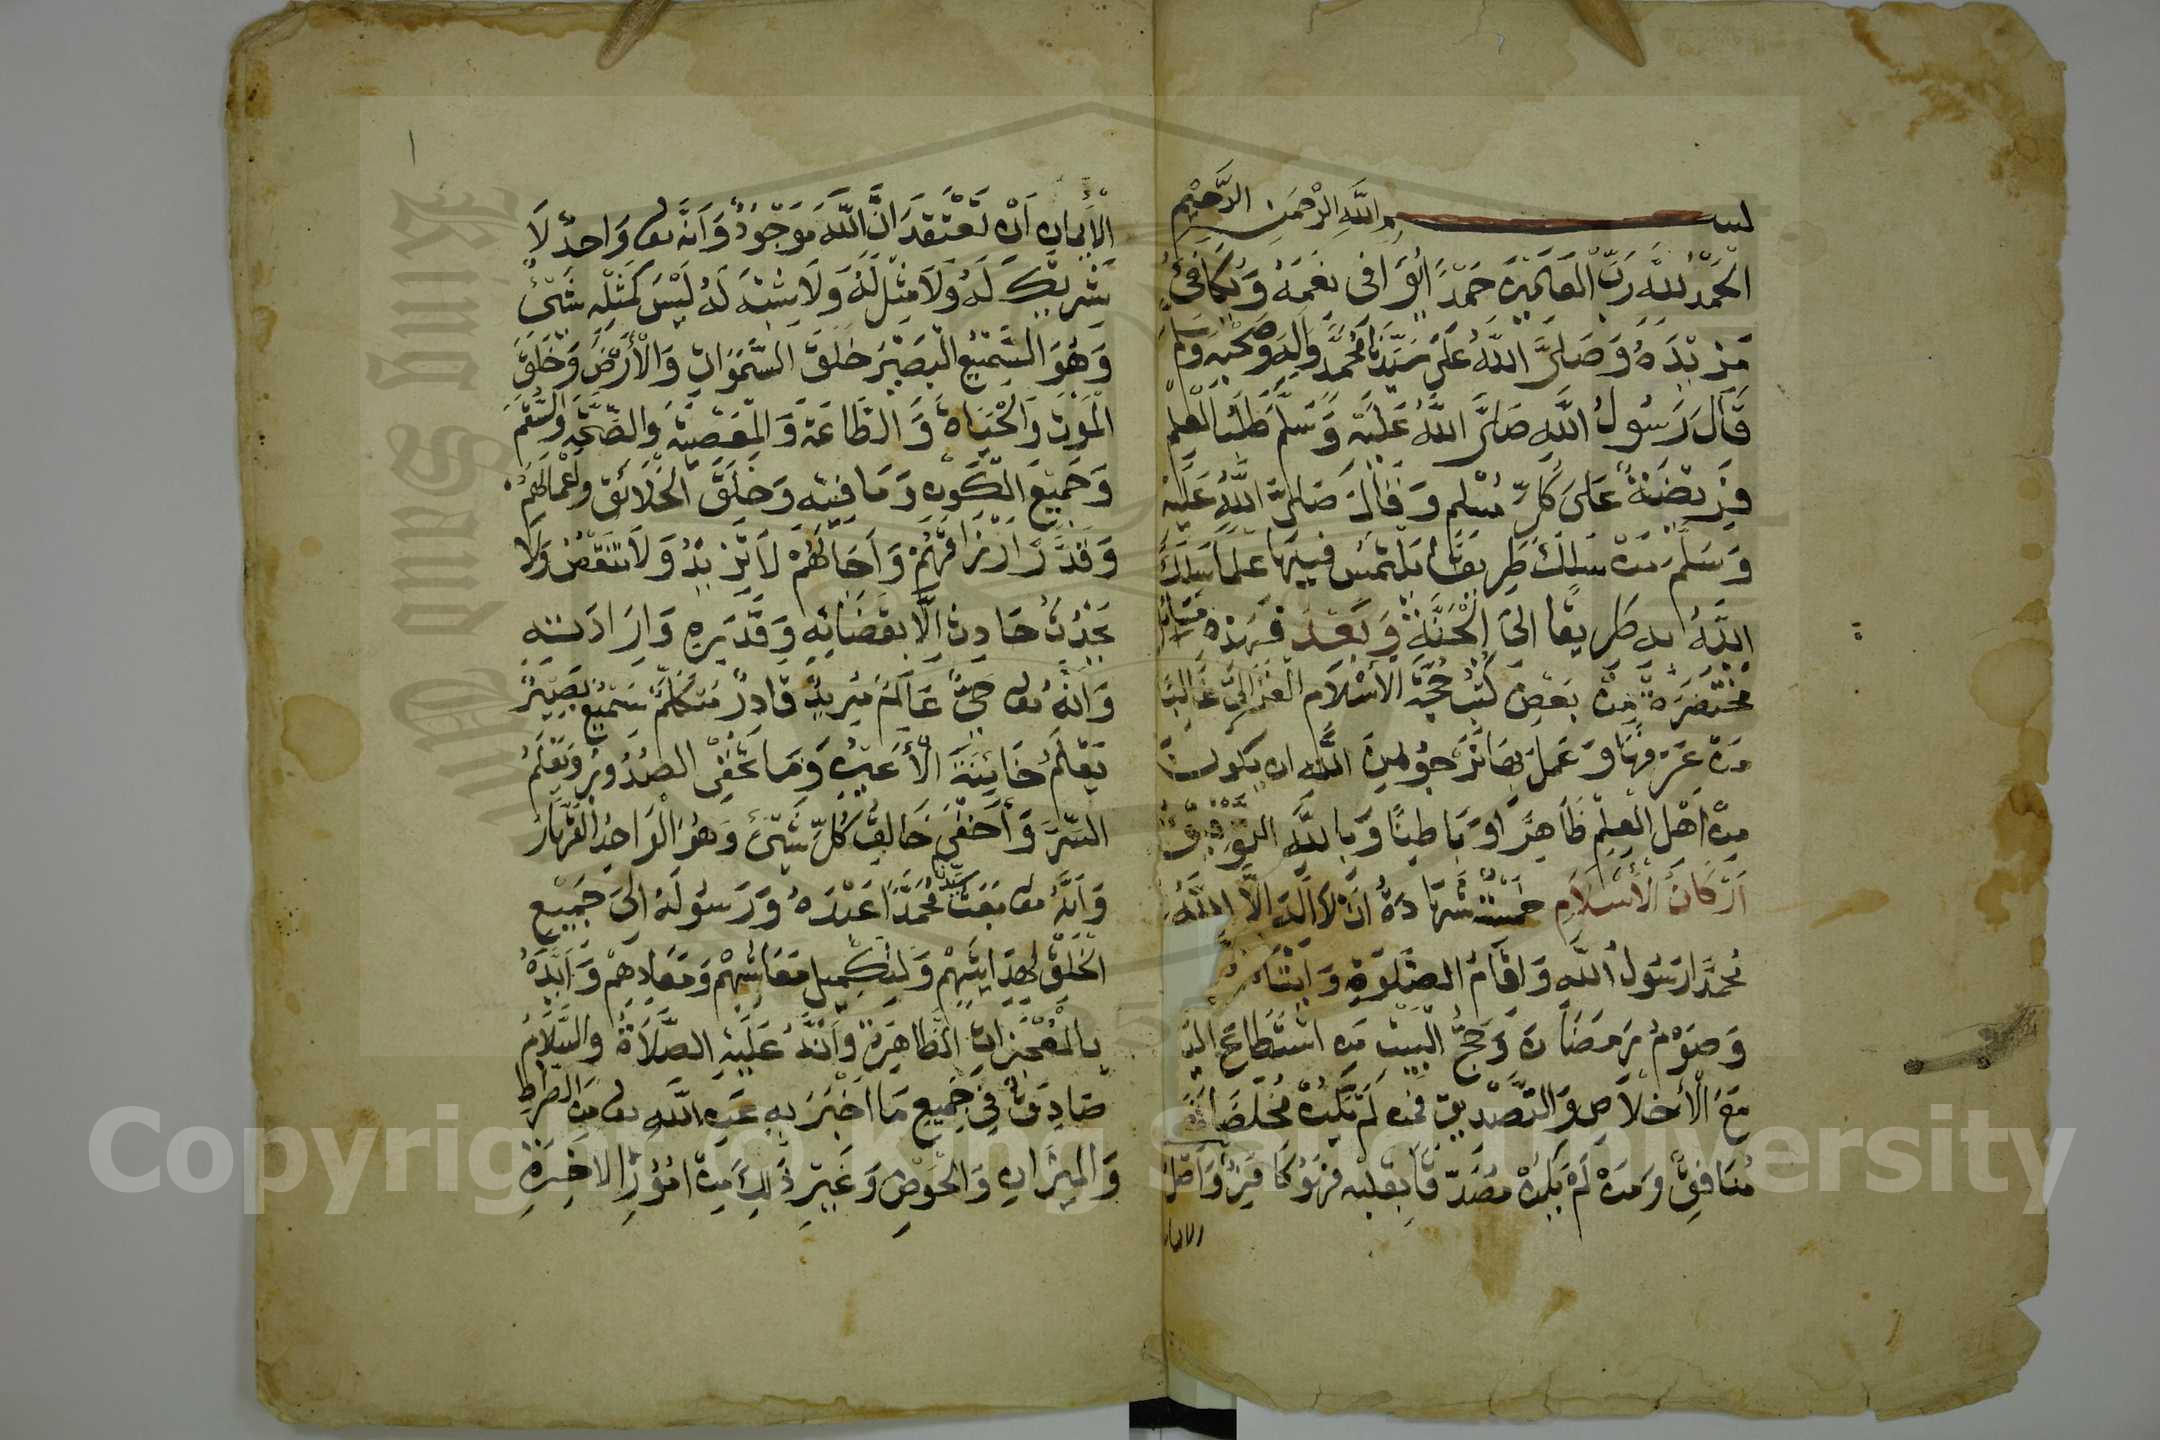 بسم الله الرحمن الرحيم
الحمد لله رب العالمين حمدا يوافي نعمه ويكافئ
مزيده وصلى الله على سيدنا محمد وآله وصحبه وسلم
قال رسول الله صلى الله عليه وسلم طلب العلم
فريضة على كل مسلم وقال صلى الله عليه
وسلم من سلك طريقا يلتمس فيها علما سلك
الله به طريقا الى الجنة وبعد فهذه مسائل
مختصرة من بعض كتب حجة الاسلام الغزالي غالبا
من عرفها وعمل بها نرجو من الله ان يكون
من اهل العلم ظاهرا وباطنا وبالله التوفيق
اركان الاسلام خمسة شهادة ان لا اله الا الله
محمدا رسول الله واقام الصلوة وايتاء
وصوم رمضان وحج البيت من استطاع اليه
مع الاخلاص والتصديق فمن لم يكن مخلصا فهو
منافق ومن لم يكن مصدقا بقلبه فهو كافر واصل
الايمان
١
الايمان ان تعتقد ان الله موجود وانه تعالى واحد لا
شريك له ولا مثل له ولا شبه له ليس كمثله شيئ
وهو السميع البصير خلق السموات والارض وخلق
الموت والحياة والطاعة والمعصية والصحة والسقم
وجميع الكون وما فيه وخلق الخلائق واعمالهم
وقدر ارزاقهم وآجالهم لا تزيد ولا تنقص ولا
يحدث حادث الا بقضائه وقدره وارادته
وانه تعالى حي عالم مريد قادر متكلم سميع بصير
يعلم خاينة الاعين وما تخفي الصدور ويعلم
السر وأخفى خالق كل شيئ وهو الواحد القهار
وانه تعالى بعث سيدنا محمدا عبده ورسوله الى جميع
الخلق لهدايتهم ولتكميل معاشهم ومعادهم وايده
بالمعجزات الظاهرة وانه عليه الصلاة والسلام
صادق في جميع ما اخبر به عن الله تعالى من الصراط
والميزان والحوض وغير ذلك من امور الاخرة
Copyright © King Saud University
King Saud University